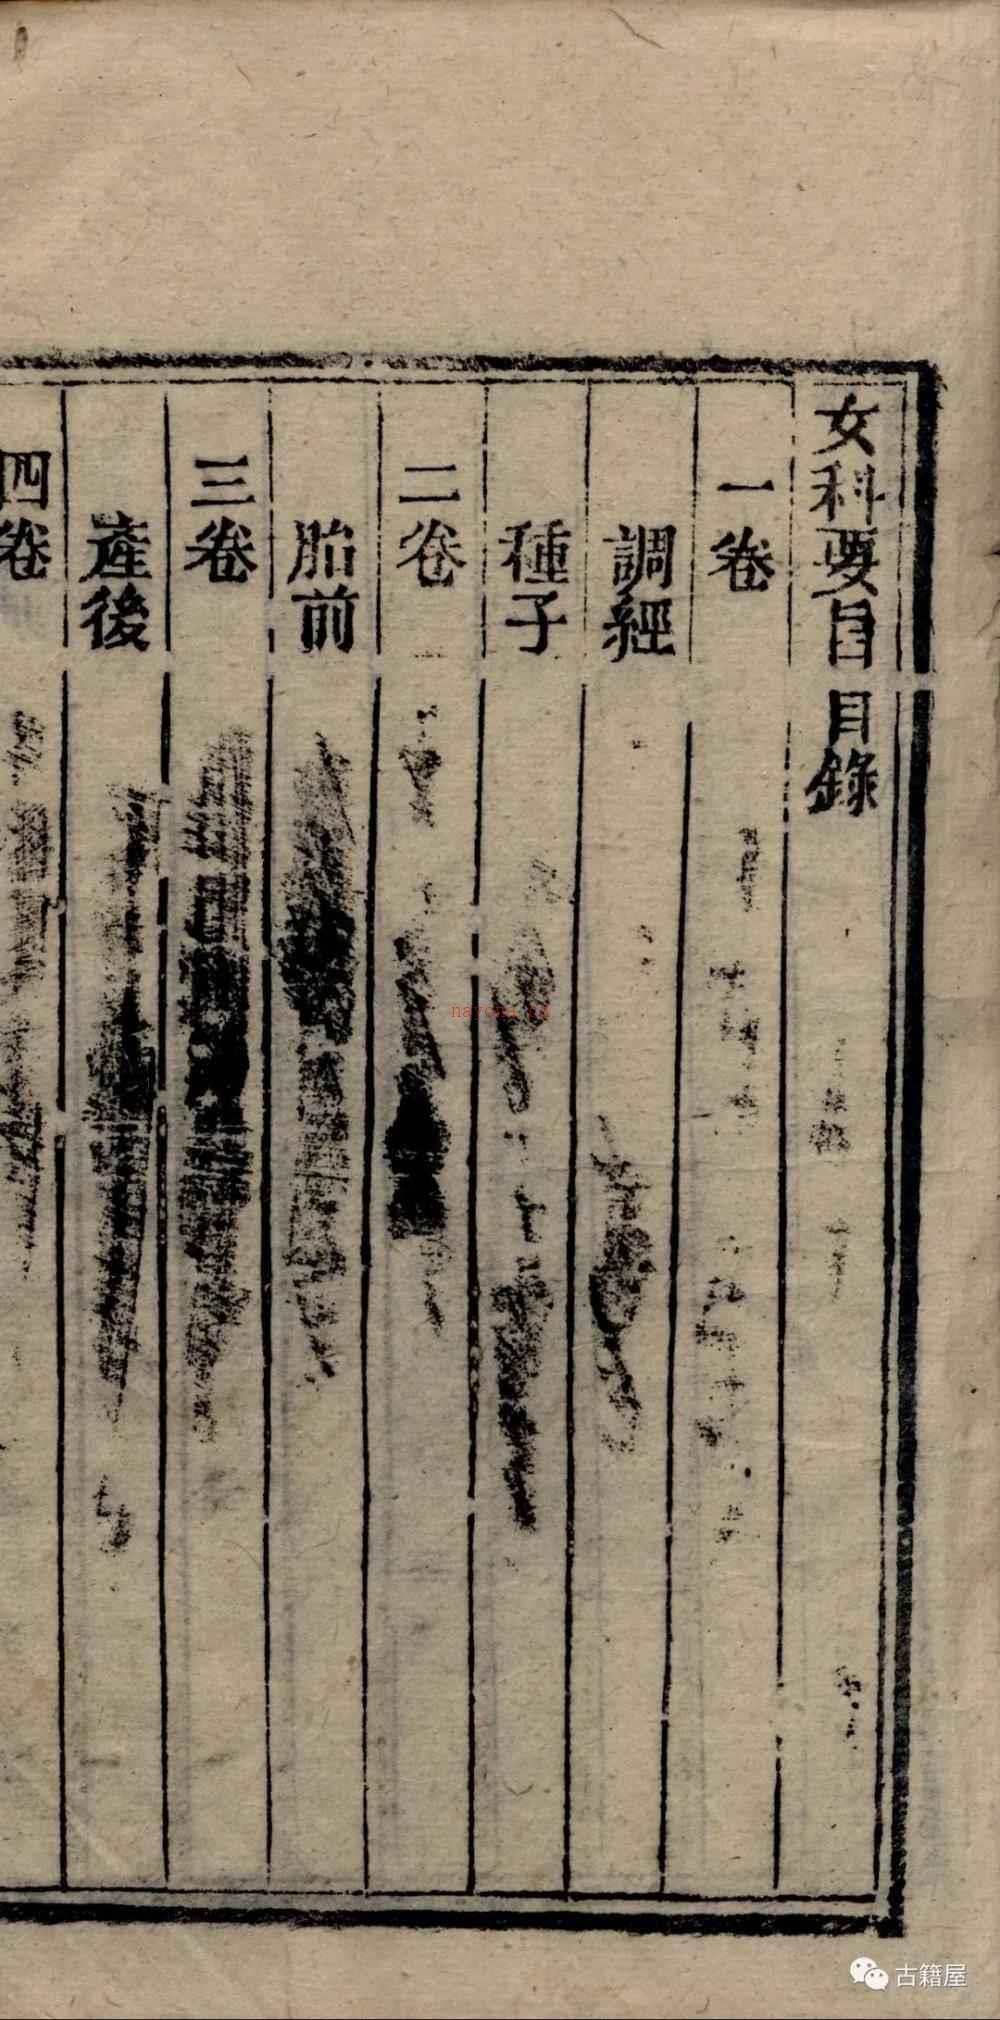 女科要旨目錄
一卷
調經
種子
二卷
胎前
三卷
產後
四卷
古籍屋